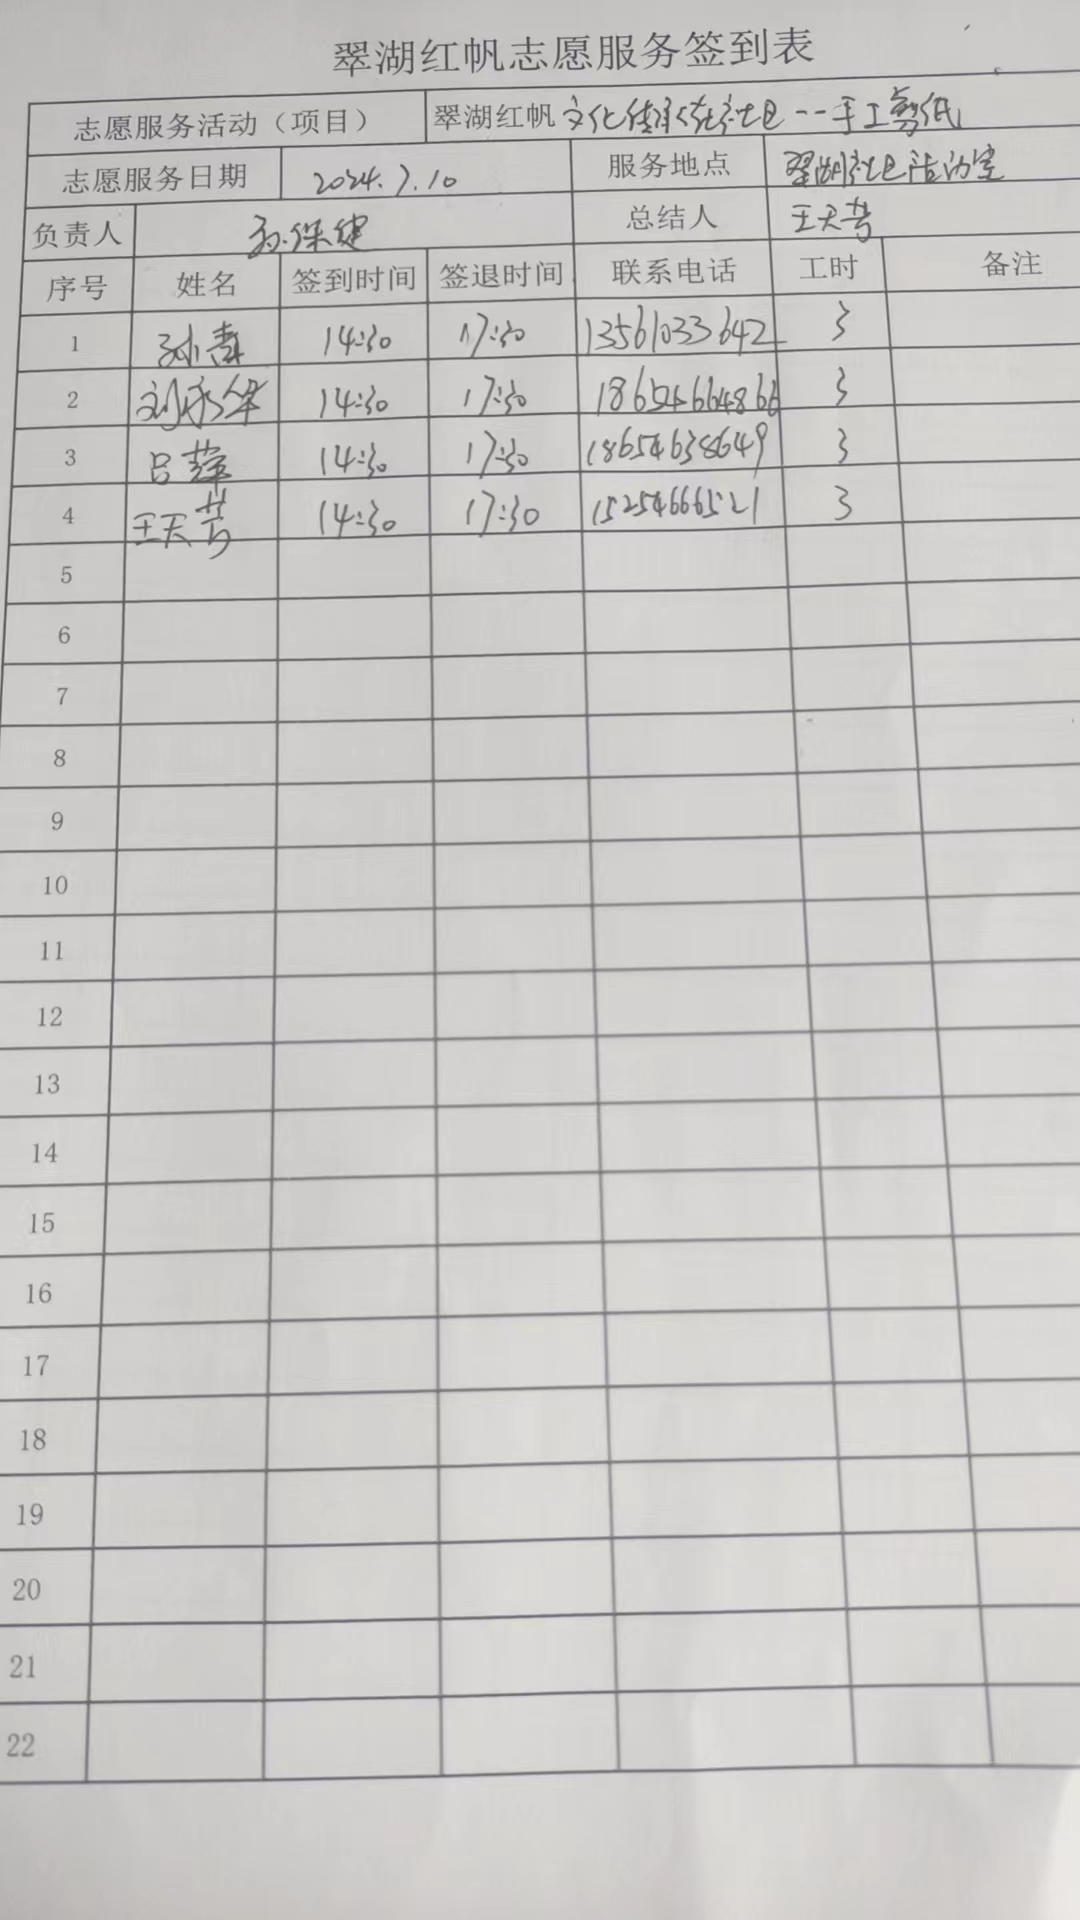 翠湖红帆志愿服务签到表
志愿服务活动（项目） 翠湖红帆 文化传承在社区--手工剪纸
志愿服务日期 2024.7.10 服务地点 翠湖社区活动室
负责人 孙保健 总结人 王天芳
序号 姓名 签到时间 签退时间 联系电话 工时 备注
1 14:30 17:30 13561033642 3
2 刘永华 14:30 17:30 186546664866 3
3 吕萍 14:30 17:30 18654638649 3
4 王天芳 14:30 17:30 15254666521 3
5
6
7
8
9
10
11
12
13
14
15
16
17
18
19
20
21
22